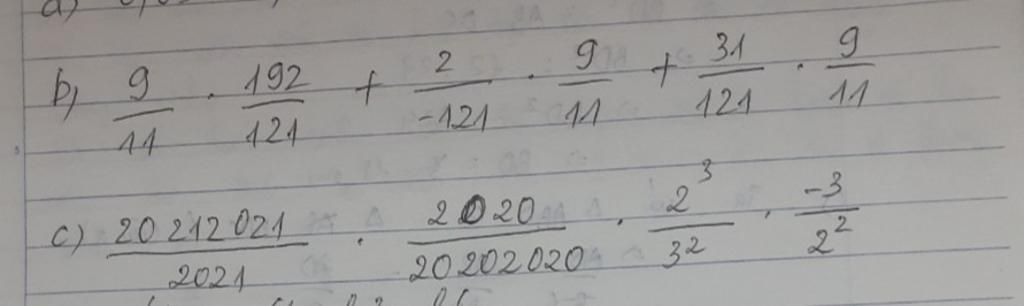 b, 9/11 . 192/121 + 2/-121 . 9/11 + 31/121 . 9/11
c) 20212021/2021 . 2020/20202020 . 2³/3² . -3/2²